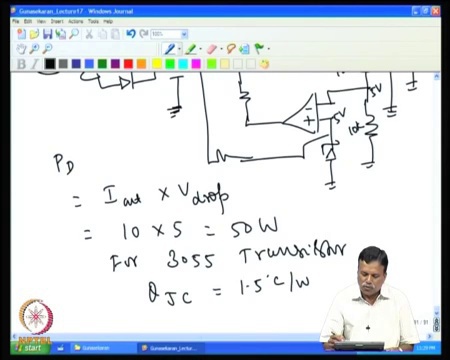 Gunasekaran_Lecture17 - Windows Journal
File Edit View Insert Actions Tools Help
100%
B I
5V
5V
10k
P_D
= I_out × V_drop
= 10 × 5 = 50W
For 3055 Transistor
θ_JC = 1.5°C/W
start
Gunasekaran
Gunasekaran_Lectu...